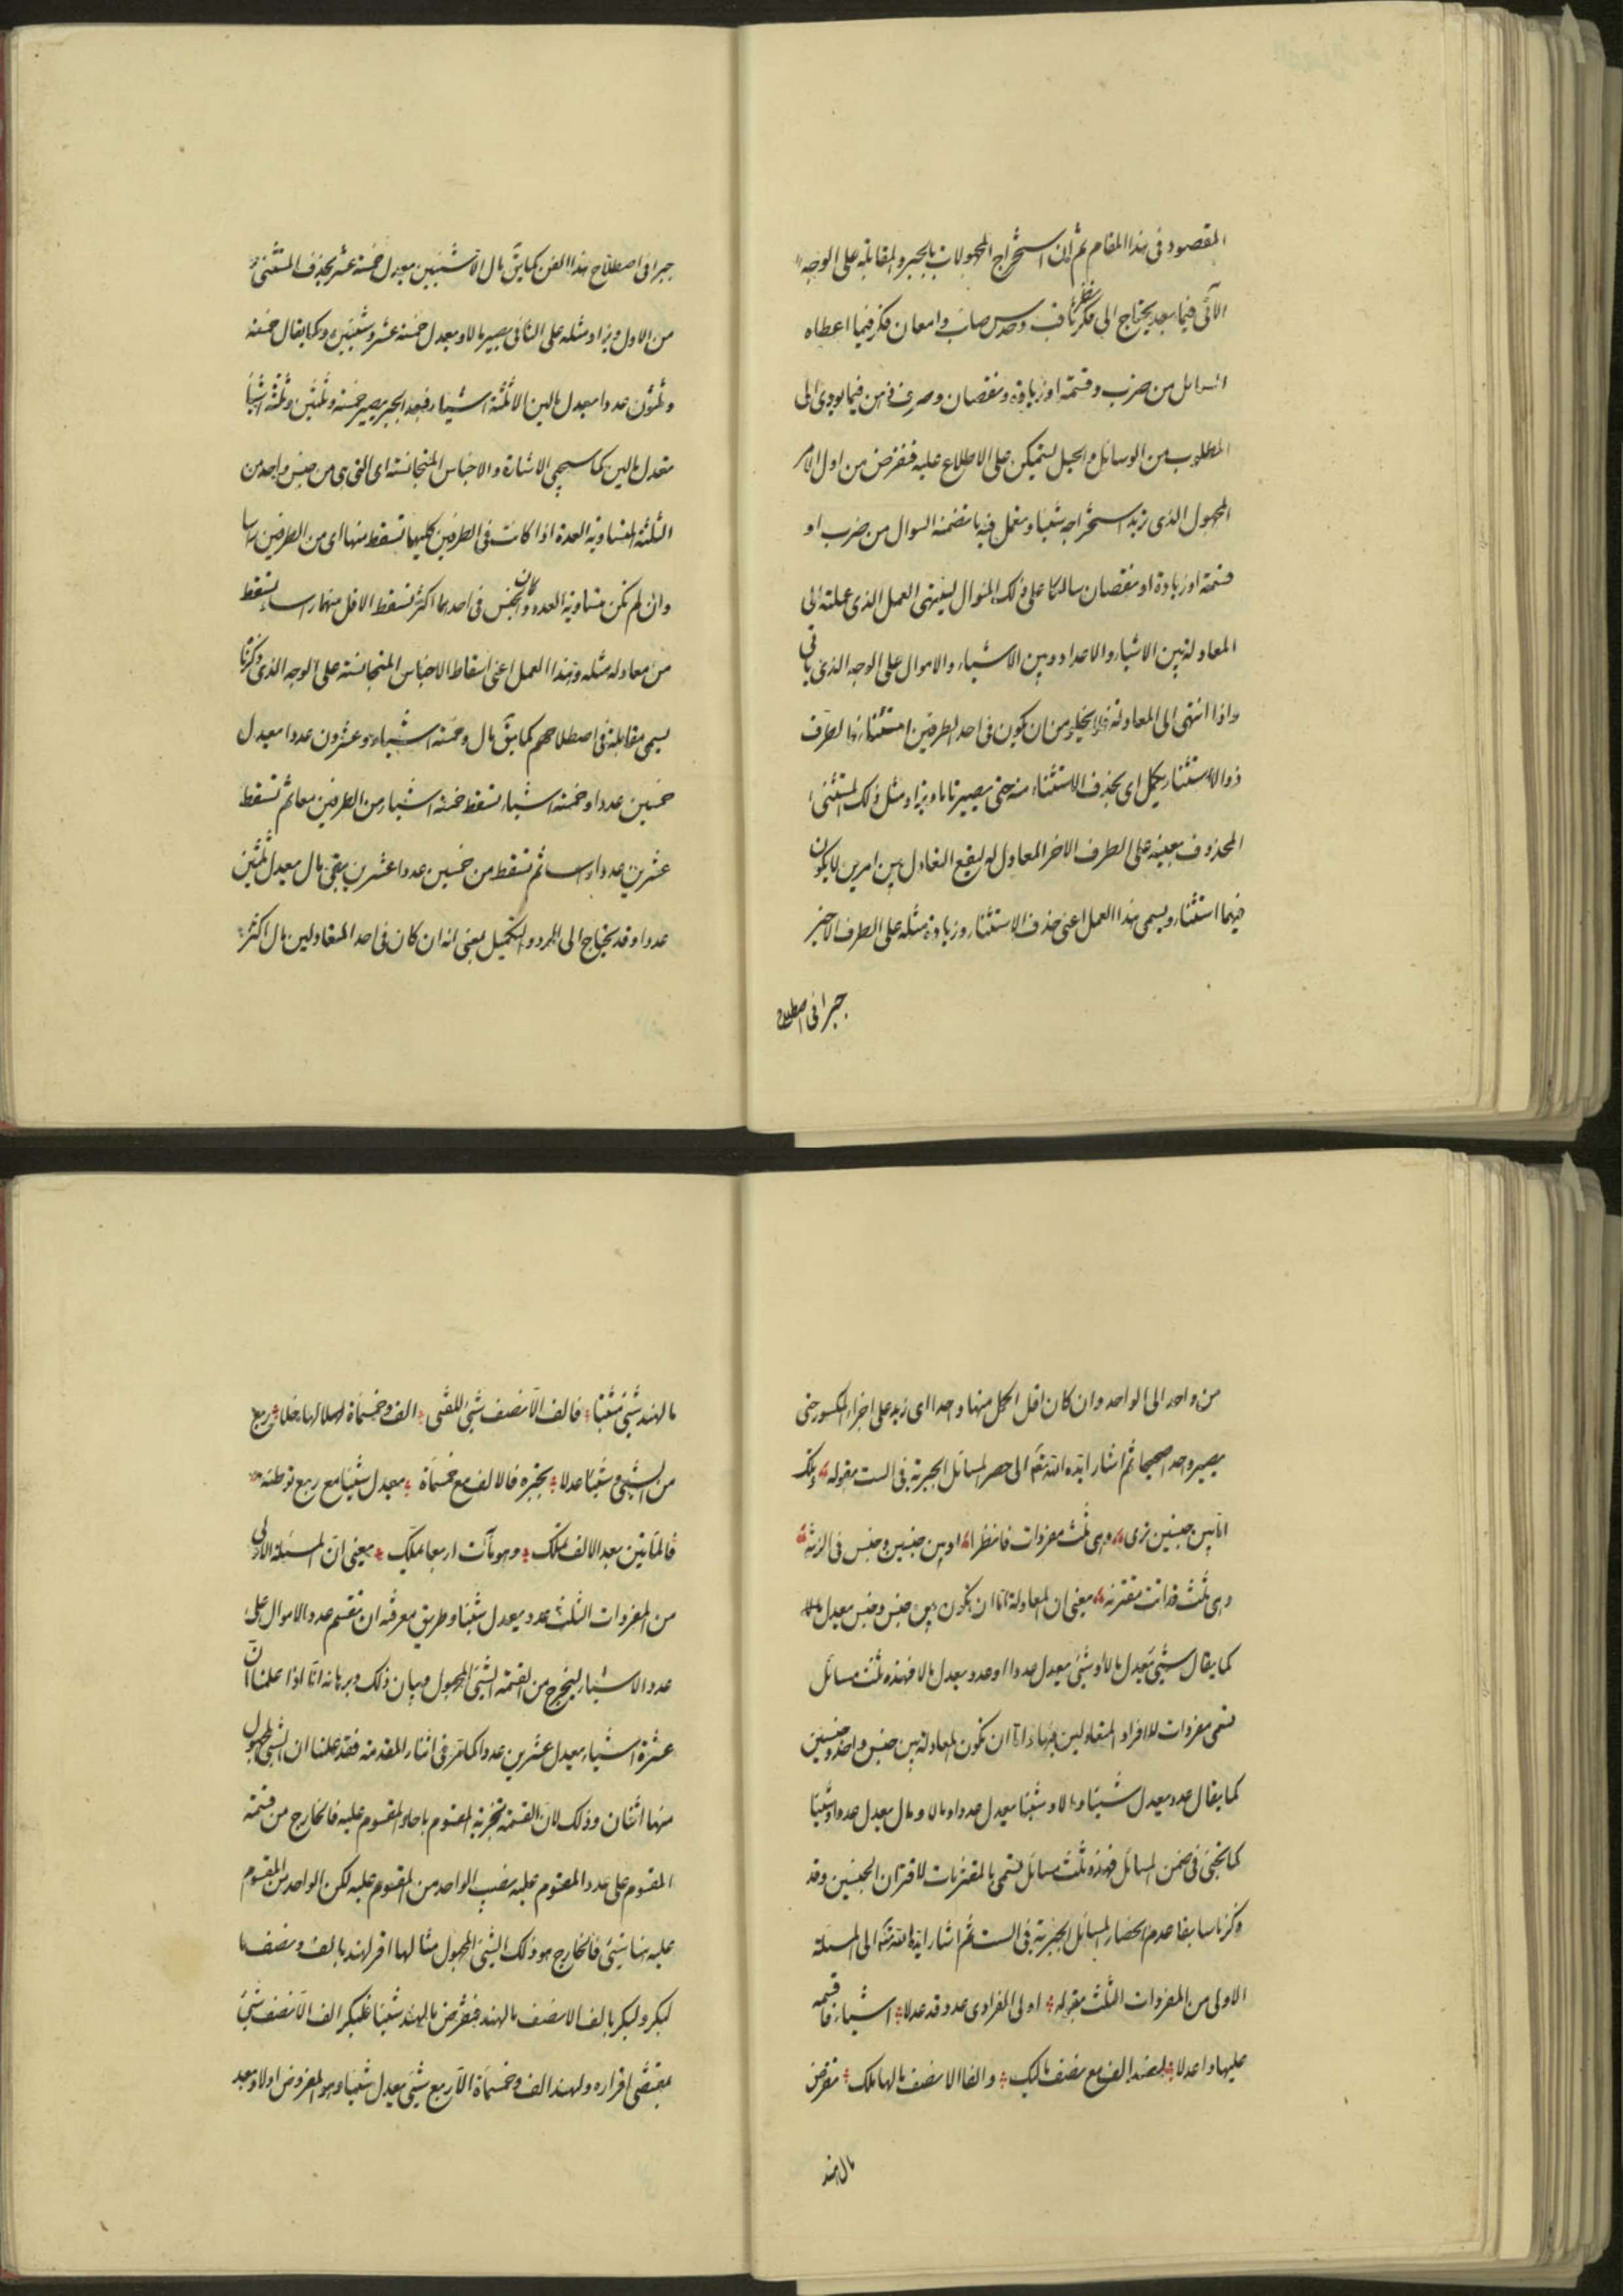 المقصود فى هذا المقام ثم ان استخراج المجهولات بالجبر والمقابلة على الوجه
الآتى فيما بعد يحتاج الى نظر
فكر ثاقب وحدس صائب وامعان فكر فيما اعطاه
السائل من ضرب وقسمة او زيادة ونقصان وصرف ذهن فيما يودى الى
المطلوب من الوسائل والحيل ليتمكن على الاطلاع عليه فنفرض من اول الامر
المجهول الذى نريد استخراجه شيئا ونعمل فيه ما تضمنه السوال من ضرب او
قسمة او زيادة او نقصان سالكا على ذلك المنوال لينتهى العمل الذى عملته الى
المعادلة بين الاشياء والاعداد وبين الاشياء والاموال على الوجه الذى ياتى
واذا انتهى الى المعادلة فلا يخلو من ان يكون فى احد الطرفين استثناء فالطرف
ذو الاستثناء يكمل اى يحذف الاستثناء منه حتى يصير تاما ويزاد مثل ذلك المستثنى
المحذوف بعينه على الطرف الاخر المعادل له ليقع التعادل بين امرين لا يكون
فيهما استثناء ويسمى هذا العمل اعنى حذف الاستثناء وزيادة مثله على الطرف الاخر
جبرا فى اصطلاح
جبرا فى اصطلاح هذا الفن كما يق مال الا شيئين يعدل خمسة عشر يحذف المستثنى
من الاول ويزاد مثله على الثانى يصير مالا ويعدل خمسة عشر وشيئين وكما يقال خمسة
وثلثون عددا يعدل مالين الا ثلثة اشياء فبعد الجبر يصير خمسة وثلثين وثلثة اشيا
تعدل مالين كما سيجى الاشارة والاجناس المتجانسة اى التى هى من جنس واحد من
الثلثة المتساوية العدة اذا كانت فى الطرفين كليهما تسقط منها اى من الطرفين راسا
وان لم تكن متساوية العدد وكان الجنس فى احدهما اكثر تسقط الاقل منهما راسا وتسقط
من معادله مثله وهذا العمل اعنى اسقاط الاجناس المتجانسة على الوجه الذى ذكرنا
يسمى مقابلة فى اصطلاحهم كما يق مال وخمسة اشياء وعشرون عددا يعدل
خمسين عددا وخمسة اشياء تسقط خمسة اشياء من الطرفين معا ثم تسقط
عشرين عددا راسا ثم تسقط من خمسين عددا عشرين يبقى مال يعدل ثلثين
عددا وقد يحتاج الى الرد والتكميل يعنى انه ان كان فى احد المتعادلين مال اكثر
من واحد الى الواحد وان كان اقل اكمل منها واحدا اى زيد على اجزاء الكسور حتى
يصير واحدا صحيحا ثم اشار ايده الله تعه الى حصر المسائل الجبرية فى الست بقوله وتلك
اما بين جنسين ترى وهى ثلث مفردات فانظرا او بين جنسين وجنس فى الزنه
وهى ثلث قد اتت مقترنه يعنى ان المعادلة اما ان يكون بين جنس وجنس يعدل مالا
كما يقال شيئى يعدل مالا وشيئ يعدل عددا او عدد يعدل مالا فهذه ثلث مسائل
تسمى مفردات لافراد المتعادلين فيها واما ان تكون المعادلة بين جنس واحد وجنسين
كما يقال عدد يعدل شيئا ومالا وشيئا يعدل عددا ومالا ومال يعدل عددا وشيئا
كما تجئ فى ضمن المسائل فهذه ثلث مسائل تسمى بالمقترنات لاقتران الجنسين وقد
ذكرنا سابقا عدم انحصار المسائل الجبرية فى الست ثم اشار ايده الله تعه الى المسئلة
الاولى من المفردات الثلث بقوله اولى الفرادى عدد قد عدلا اشياء فاقسمه
عليها واعدلا لهند الف مع نصف مالبك والفا الا نصف مالها بلك نفرض
مال هند
مالهند شيئ شيئا فالف الا نصف شيئ للفتى الف وخمسماة لها لا ربع
من الشيئ وشيئا عدلا بجبره فالالف مع خمسماة يعدل شيئا مع ربع توطنه
فالمأتين بعد الالف تملك وهو مآت اربعا ملك يعنى ان المسئلة الاولى
من المفردات الثلث عدد يعدل شيئا وطريق معرفته ان تقسم عدد الاموال على
عدد الاشياء ليخرج من القسمة الشيئ المجهول وبيان ذلك وبرهانه انا اذا علمنا ان
عشرة اشياء يعدل عشرين عددا كما مر فى اثناء المقدمة فقد علمنا ان الشئ المجهول
منها اثنان وذلك لان القسمة تجزية المقسوم باحاد المقسوم عليه فالخارج من قسمة
المقسوم على عدد المقسوم عليه نصيب الواحد من المقسوم عليه لكن الواحد من المقسوم
عليه هنا شيئ فالخارج هو ذلك الشيئ المجهول مثالها اقر لهند بالف ونصف ما
لبكر ولبكر بالف الا نصف مالهند فنفرض مالهند شيئا فلبكر الف الا نصف شيئ
بمقتضى اقراره ولهند الف وخمسماة الا ربع شيئ يعدل شيئا وهو المفروض اولا وبعد